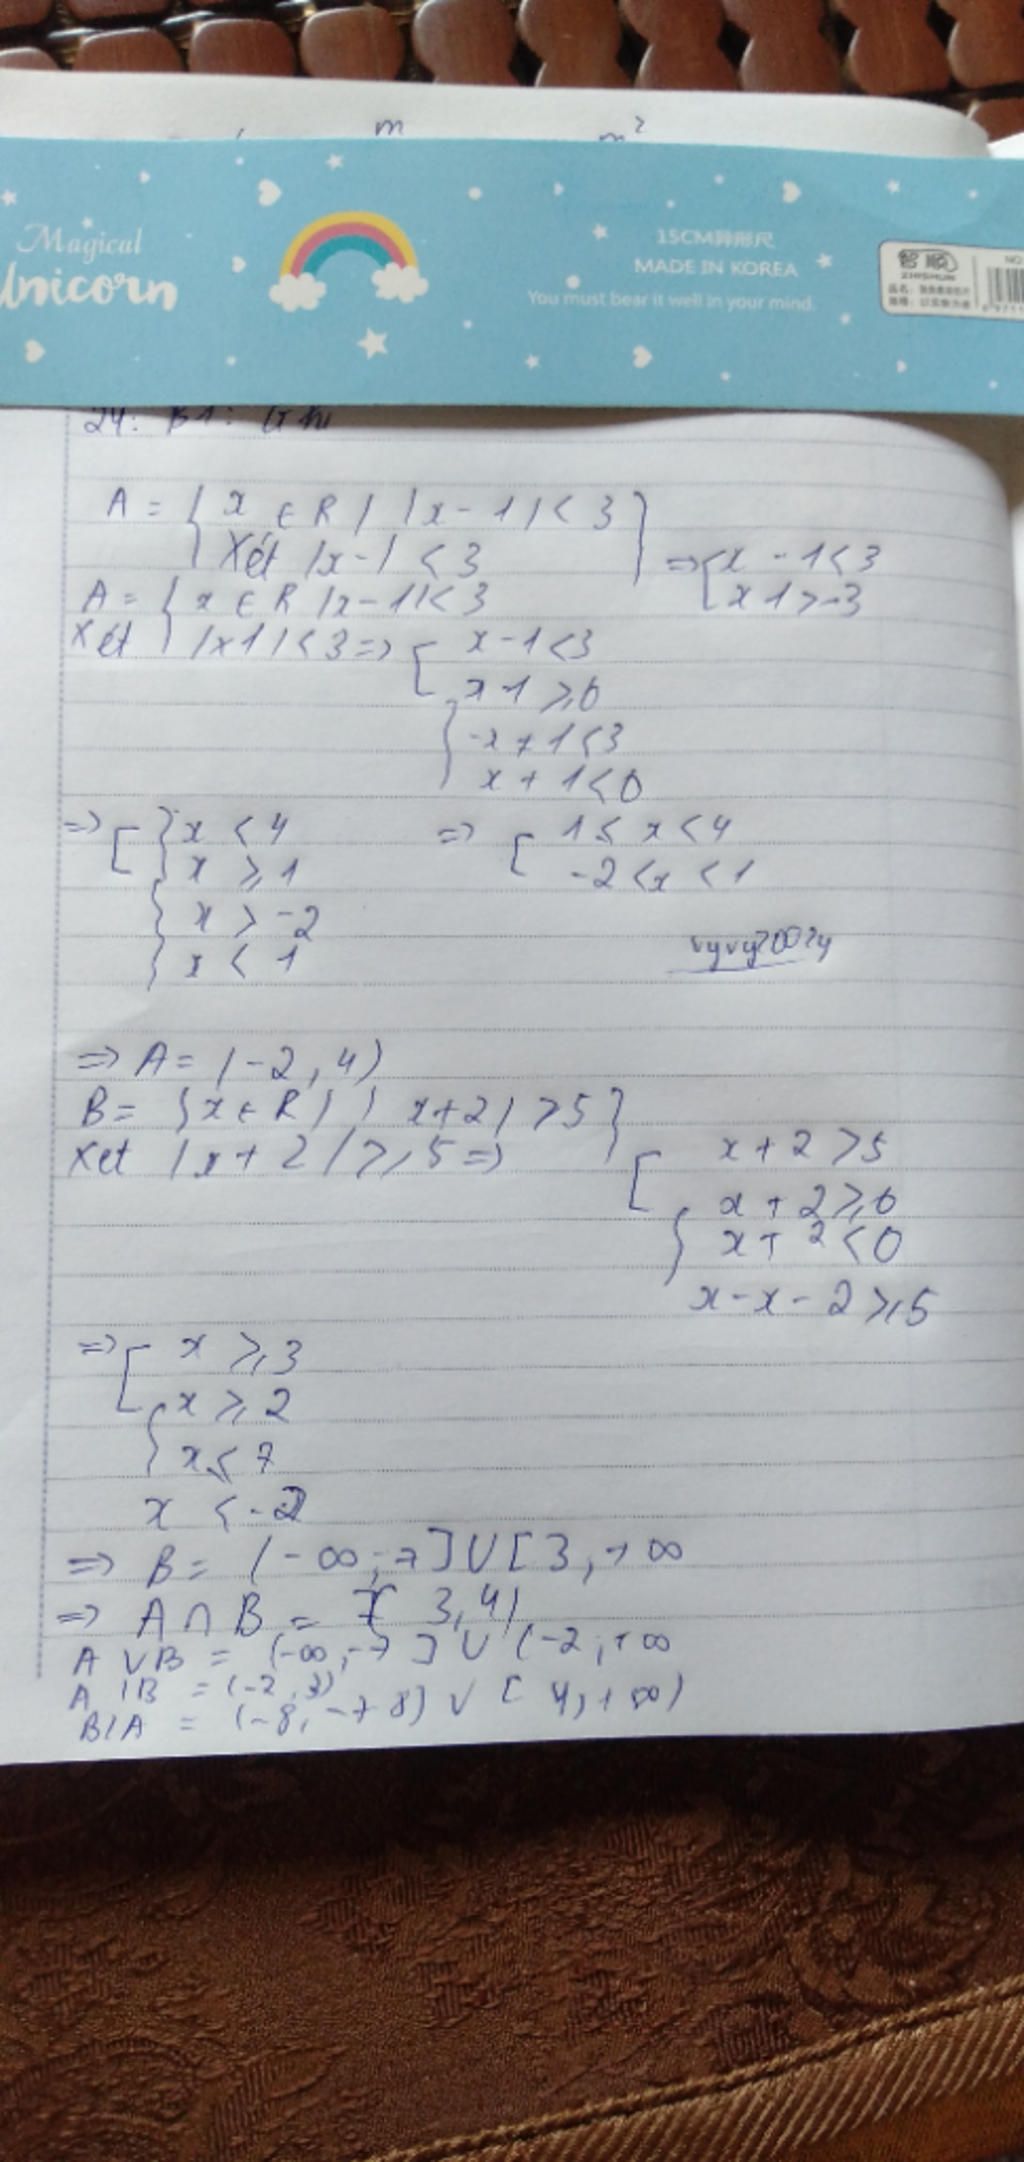 m m²
Magical
Unicorn
15CM异形尺
MADE IN KOREA
You must bear it well in your mind.
智顺
ZHISHUN
NO
24: B1:
A = { x ∈ R | |x - 1| < 3 }
Xét |x - | < 3 => [ x - 1 < 3
A = { x ∈ R |x - 1| < 3 [ x 1 > -3
Xét |x 1| < 3 => [ x - 1 < 3
x - 1 ≥ 0
{ -x + 1 < 3
x + 1 < 0
=> [ { x < 4 => [ 1 ≤ x < 4
x ≥ 1 -2 < x < 1
{ x > -2
x < 1
vyvy2002y
=> A = (-2, 4)
B = { x ∈ R | | x + 2 | > 5 }
Xet | x + 2 | ≥ 5 => [ x + 2 > 5
x + 2 ≥ 0
{ x + 2 < 0
x - x - 2 ≥ 5
=> [ x ≥ 3
{ x ≥ 2
x ≤ 7
x < -2
=> B = (-∞; -7] U [3, +∞
=> A ∩ B = [3, 4)
A U B = (-∞, -7] U (-2; +∞
A | B = (-2, 3)
B / A = (-8, -7 8) U [4, +∞)